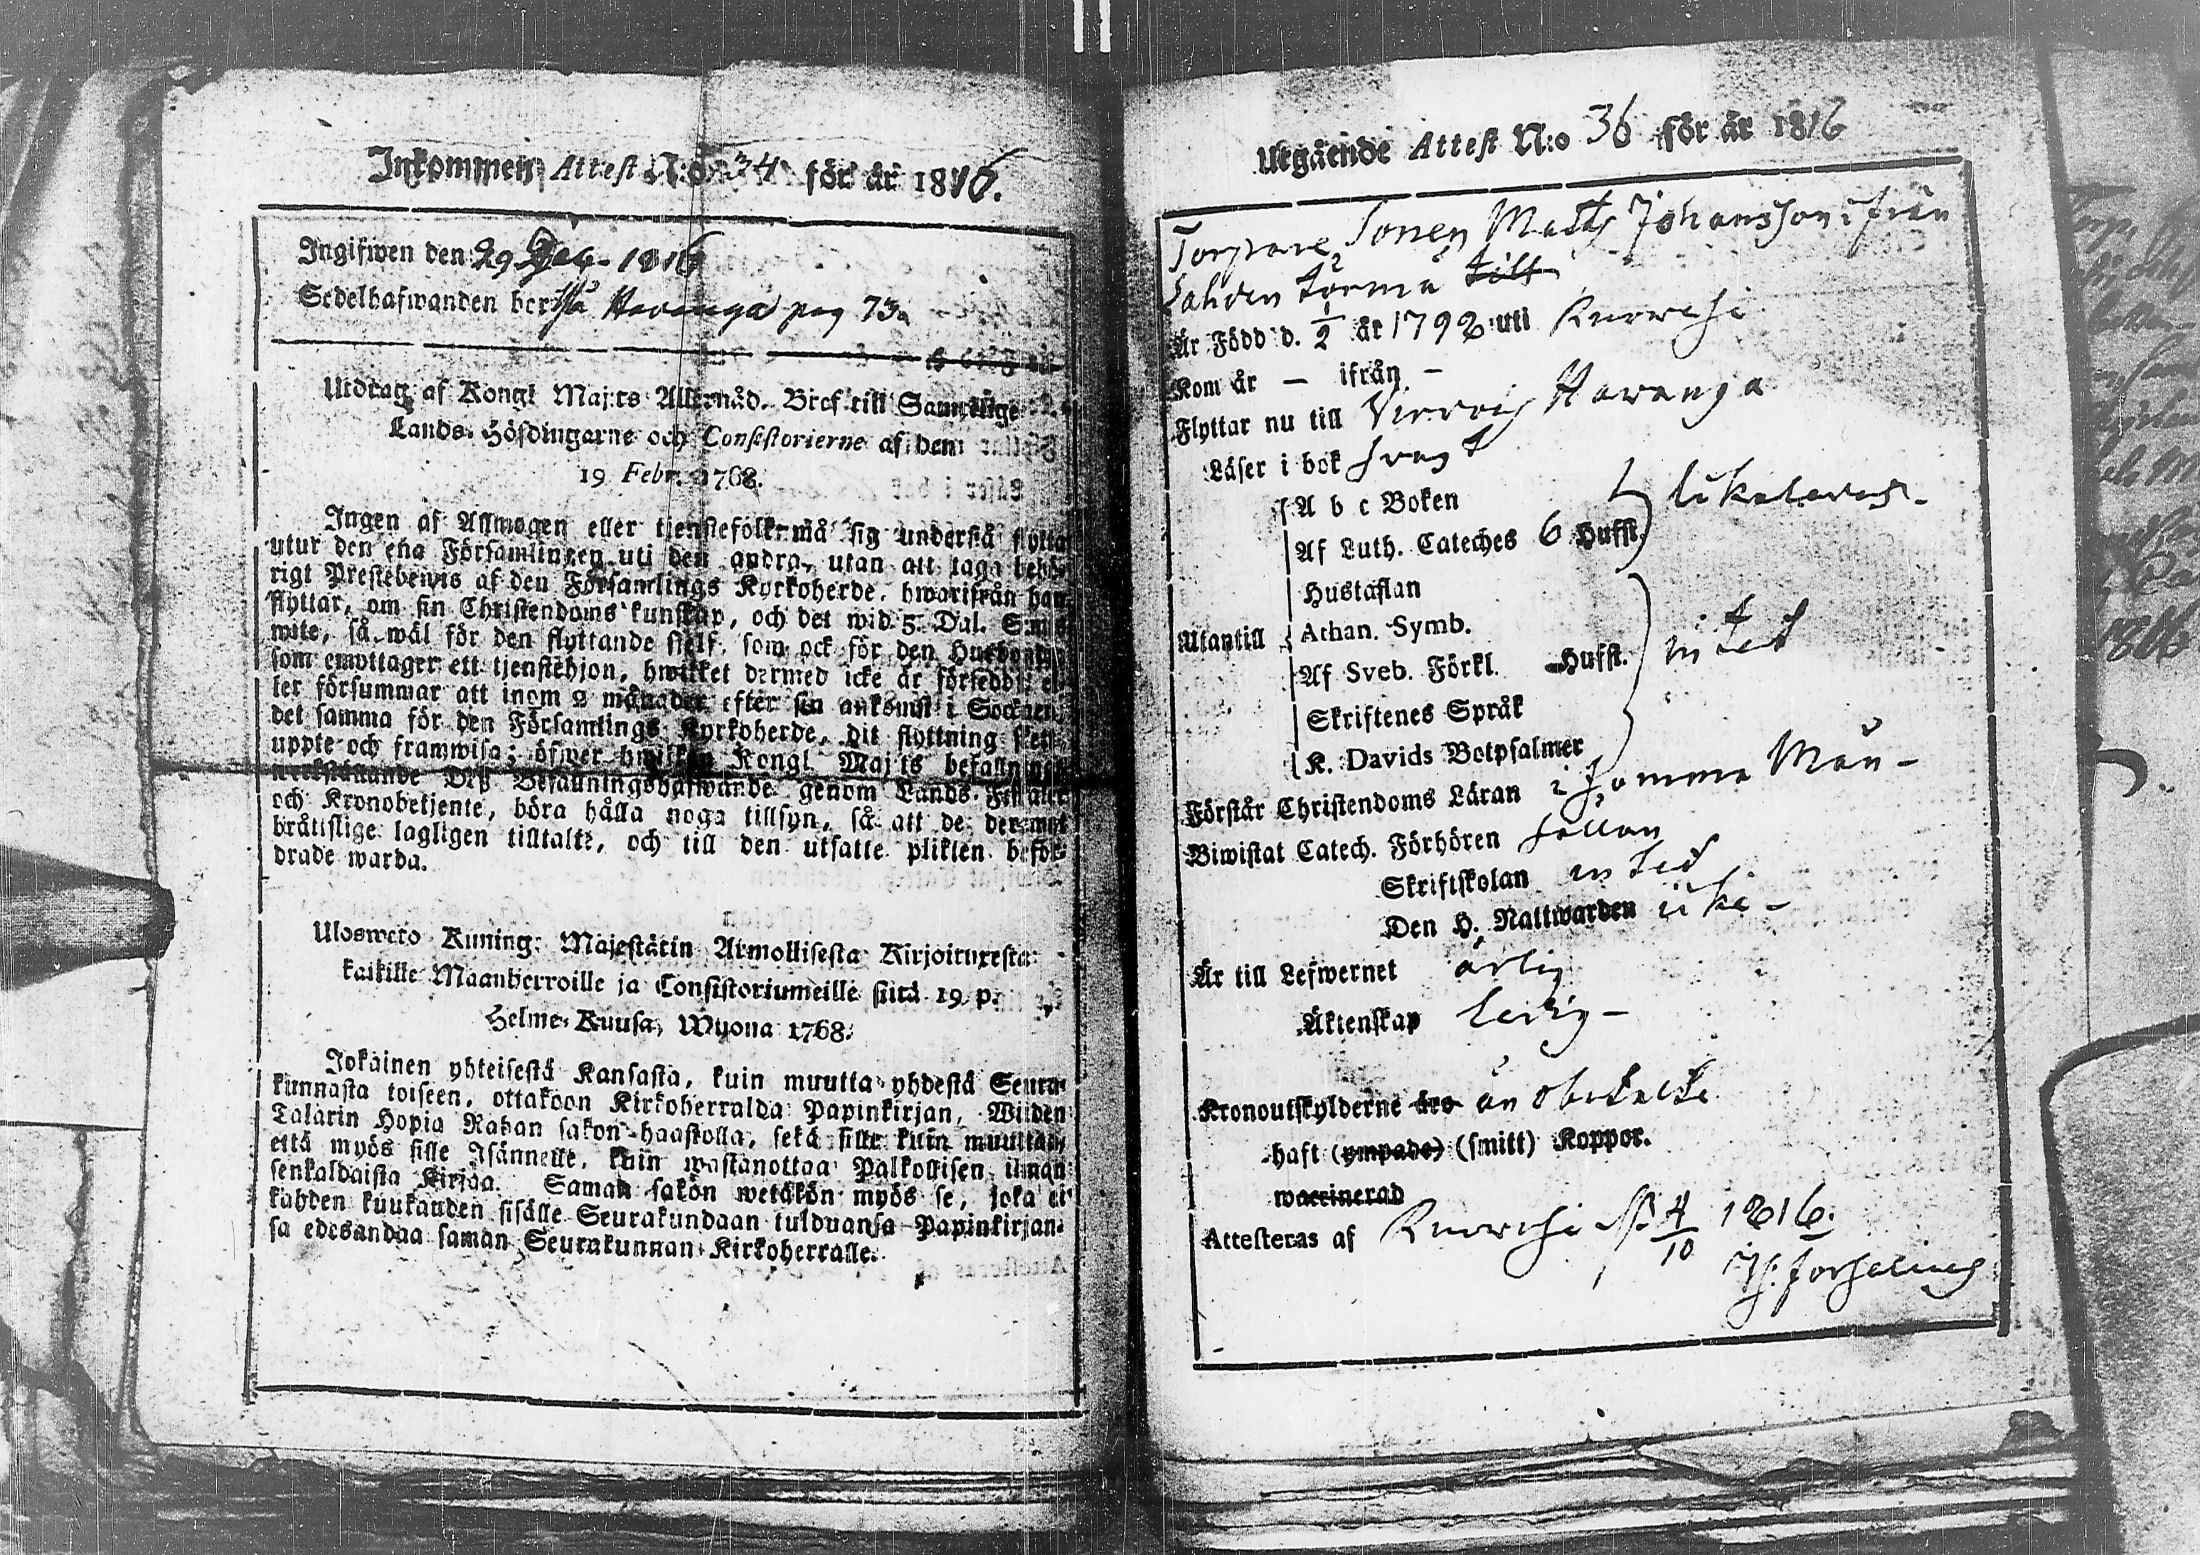 Inkommen Attest N:o 34 för år 1816.
Ingifwen den 29 1816
Sedelhafwanden ber Havanga pag 73.
Utdrag af Kongl Maj:ts Allernåd. Bref till Samtelige
Lands-Höfdingarne och Consistorierne af den
19 Febr. 1768.
Ingen af Allmogen eller tjenstefolk må sig understå flytta
utur den ena Församlingen uti den andra, utan att taga behö-
rigt Prestebewis af den Församlings Kyrkoherde, hwarifrån han
flyttar, om sin Christendoms kunskap, och det wid 5 Dal. S:mts
wite, så wäl för den flyttande sjelf, som ock för den Husbonde
som emottager ett tjenstehjon, hwilket dermed icke är försedd; el-
ler försummar att inom 2 månader efter sin ankomst i Socknen,
det samma för den Församlings Kyrkoherde, dit flyttning skett,
uppte och framwisa; öfwer hwilken Kongl. Maj:ts befallning
werkställande Dess Befallningshafwande genom Lands-Fiskaler
och Kronobetjente, böra hålla noga tillsyn, så att de deremot
bråttslige lagligen tilltalte, och till den utsatte plikten beford-
drade warda.
Ulosweto Kuning: Majestätin Armollisesta Kirjoituxesta
kaikille Maanherroille ja Consistoriumeille siitä 19 p.
Helme-Kuusa, Wuona 1768.
Jokainen yhteisestä Kansasta, kuin muutta yhdestä Seura-
kunnasta toiseen, ottakoon Kirkoherralda Papinkirjan, Wijden
Talarin Hopia Rahan sakon haastolla, sekä sille kuin muuttaa,
että myös sille Isännelle, kuin wastanottaa Palkollisen ilman
senkaldaista Kirjaa. Saman sakon wetäkön myös se, joka ei
kahden kuukauden sisälle Seurakundaan tulduansa Papinkirjan-
sa edesandaa saman Seurakunnan Kirkoherralle.
Utgående Attest N:o 36 för år 1816
Torpare Sonen Matts Johansson ifrån
Lahden Törmä till
Är Född d. 1/2 år 1792 uti Kuorehi
Kom år — ifrån —
Flyttar nu till Virrois Havanga
Läser i bok svagt
A b c Boken
Af Luth. Cateches 6 Hufst. likaledes -
Hustaflan
Utantill Athan. Symb.
Af Sveb. Förkl. Hufst. intet
Skriftenes Språk
K. Davids Botpsalmer
Förstår Christendoms Läran i samma Mån -
Biwistat Catech. Förhören sällan
Skriftskolan intet
Den H. Nattwarden icke -
Är till Lefwernet ärlig
Äktenskap ledig -
Kronoutskylderne äro än obetalte
haft (ympade) (smitt) Koppor.
waccinerad
Attesteras af Kuorehi 4/10 1816.
Forselius